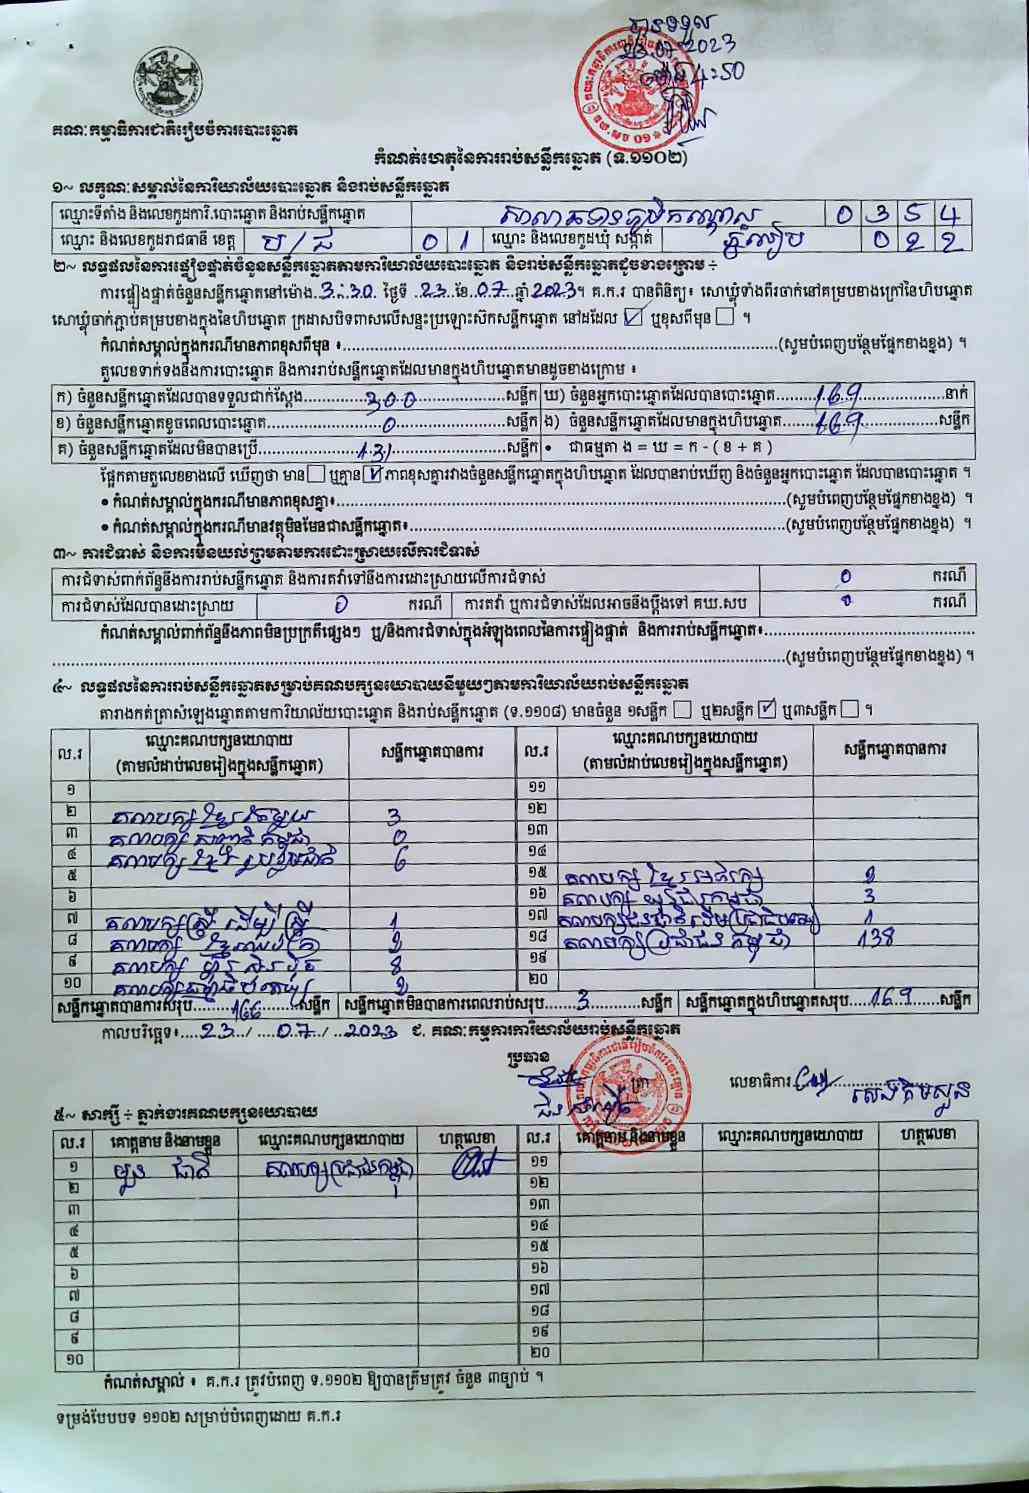 បានទទួល
23.07.2023
ម៉ោង 4:50
គណៈកម្មាធិការជាតិរៀបចំការបោះឆ្នោត
កំណត់ហេតុនៃការរាប់សន្លឹកឆ្នោត (ទ.១១០២)
១~ លក្ខណៈសម្គាល់នៃការិយាល័យបោះឆ្នោត និងរាប់សន្លឹកឆ្នោត
ឈ្មោះទីតាំង និងលេខកូដការិ.បោះឆ្នោត និងរាប់សន្លឹកឆ្នោត សាលាឆទានភូមិកណ្តាល 0 3 5 4
ឈ្មោះ និងលេខកូដរាជធានី ខេត្ត ប/ជ 0 1 ឈ្មោះ និងលេខកូដឃុំ សង្កាត់ ភ្នំលៀប 0 2 2
២~ លទ្ធផលនៃការផ្ទៀងផ្ទាត់ចំនួនសន្លឹកឆ្នោតតាមការិយាល័យបោះឆ្នោត និងរាប់សន្លឹកឆ្នោតដូចខាងក្រោម ÷
ការផ្ទៀងផ្ទាត់ចំនួនសន្លឹកឆ្នោតនៅម៉ោង 3:30 ថ្ងៃទី 23 ខែ 07 ឆ្នាំ 2023។ គ.ក.រ បានពិនិត្យ៖ សោឃ្លុំទាំងពីរចាក់នៅគម្របខាងក្រៅនៃហិបឆ្នោត
សោឃ្លុំចាក់ភ្ជាប់គម្របខាងក្នុងនៃហិបឆ្នោត ក្រដាសបិទពាសលើសន្ទះប្រឡោះស៊កសន្លឹកឆ្នោត នៅដដែល ☑ ឬខុសពីមុន ☐ ។
កំណត់សម្គាល់ក្នុងករណីមានភាពខុសពីមុន ៖ (សូមបំពេញបន្ថែមផ្នែកខាងខ្នង) ។
តួលេខទាក់ទងនឹងការបោះឆ្នោត និងការរាប់សន្លឹកឆ្នោតដែលមានក្នុងហិបឆ្នោតមានដូចខាងក្រោម ៖
ក) ចំនួនសន្លឹកឆ្នោតដែលបានទទួលជាក់ស្តែង 300 សន្លឹក ឃ) ចំនួនអ្នកបោះឆ្នោតដែលបានបោះឆ្នោត 169 នាក់
ខ) ចំនួនសន្លឹកឆ្នោតខូចពេលបោះឆ្នោត 0 សន្លឹក ង) ចំនួនសន្លឹកឆ្នោតដែលមានក្នុងហិបឆ្នោត 169 សន្លឹក
គ) ចំនួនសន្លឹកឆ្នោតដែលមិនបានប្រើ 131 សន្លឹក • ជាធម្មតា ង = ឃ = ក - ( ខ + គ )
ផ្អែកតាមតួលេខខាងលើ ឃើញថា មាន ☐ ឬគ្មាន ☑ ភាពខុសគ្នារវាងចំនួនសន្លឹកឆ្នោតក្នុងហិបឆ្នោត ដែលបានរាប់ឃើញ និងចំនួនអ្នកបោះឆ្នោត ដែលបានបោះឆ្នោត ។
• កំណត់សម្គាល់ក្នុងករណីមានភាពខុសគ្នា៖ (សូមបំពេញបន្ថែមផ្នែកខាងខ្នង) ។
• កំណត់សម្គាល់ក្នុងករណីមានវត្ថុមិនមែនជាសន្លឹកឆ្នោត៖ (សូមបំពេញបន្ថែមផ្នែកខាងខ្នង) ។
៣~ ការជំទាស់ និងការមិនយល់ព្រមតាមការដោះស្រាយលើការជំទាស់
ការជំទាស់ពាក់ព័ន្ធនឹងការរាប់សន្លឹកឆ្នោត និងការតវ៉ាទៅនឹងការដោះស្រាយលើការជំទាស់ 0 ករណី
ការជំទាស់ដែលបានដោះស្រាយ 0 ករណី ការតវ៉ា ឬការជំទាស់ដែលអាចនឹងប្តឹងទៅ គឃ.សប 0 ករណី
កំណត់សម្គាល់ពាក់ព័ន្ធនឹងភាពមិនប្រក្រតីផ្សេងៗ ឬ/និងការជំទាស់ក្នុងអំឡុងពេលនៃការផ្ទៀងផ្ទាត់ និងការរាប់សន្លឹកឆ្នោត៖
(សូមបំពេញបន្ថែមផ្នែកខាងខ្នង) ។
៤~ លទ្ធផលនៃការរាប់សន្លឹកឆ្នោតសម្រាប់គណបក្សនយោបាយនីមួយៗតាមការិយាល័យរាប់សន្លឹកឆ្នោត
តារាងកត់ត្រាសំឡេងឆ្នោតតាមការិយាល័យបោះឆ្នោត និងរាប់សន្លឹកឆ្នោត (ទ.១១០៨) មានចំនួន ១សន្លឹក ☐ ឬ២សន្លឹក ☑ ឬ៣សន្លឹក ☐ ។
ល.រ ឈ្មោះគណបក្សនយោបាយ (តាមលំដាប់លេខរៀងក្នុងសន្លឹកឆ្នោត) សន្លឹកឆ្នោតបានការ ល.រ ឈ្មោះគណបក្សនយោបាយ (តាមលំដាប់លេខរៀងក្នុងសន្លឹកឆ្នោត) សន្លឹកឆ្នោតបានការ
១ ១១
២ គណបក្ស ខ្មែរតែមួយ 3 ១២
៣ គណបក្ស សញ្ជាតិកម្ពុជា 0 ១៣
៤ គណបក្ស ខ្មែររួបរួមជាតិ 6 ១៤
៥ ១៥ គណបក្ស ខ្មែរអភិរក្ស
៦ ១៦ គណបក្ស 3
៧ គណបក្សស្ត្រី ដើម្បីស្ត្រី 1 ១៧ គណបក្សជនជាតិដើមប្រជាធិបតេយ្យ 1
៨ គណបក្ស ១៨ គណបក្សប្រជាជនកម្ពុជា 138
៩ គណបក្ស ហ្វ៊ុនស៊ិនប៉ិច 8 ១៩
១០ គណបក្ស ២០
សន្លឹកឆ្នោតបានការសរុប 166 សន្លឹក សន្លឹកឆ្នោតមិនបានការពេលរាប់សរុប 3 សន្លឹក សន្លឹកឆ្នោតក្នុងហិបឆ្នោតសរុប 169 សន្លឹក
កាលបរិច្ឆេទ៖ 23 / 07 / 2023 ជ. គណៈកម្មការការិយាល័យរាប់សន្លឹកឆ្នោត
ប្រធាន
ត្រា លេខាធិការ
៥~ សាក្សី ÷ ភ្នាក់ងារគណបក្សនយោបាយ
ល.រ គោត្តនាម និងនាមខ្លួន ឈ្មោះគណបក្សនយោបាយ ហត្ថលេខា ល.រ គោត្តនាម និងនាមខ្លួន ឈ្មោះគណបក្សនយោបាយ ហត្ថលេខា
១ គណបក្សប្រជាជនកម្ពុជា ១១
២ ១២
៣ ១៣
៤ ១៤
៥ ១៥
៦ ១៦
៧ ១៧
៨ ១៨
៩ ១៩
១០ ២០
កំណត់សម្គាល់ ៖ គ.ក.រ ត្រូវបំពេញ ទ.១១០២ ឱ្យបានត្រឹមត្រូវ ចំនួន ៣ច្បាប់ ។
ទម្រង់បែបបទ ១១០២ សម្រាប់បំពេញដោយ គ.ក.រ